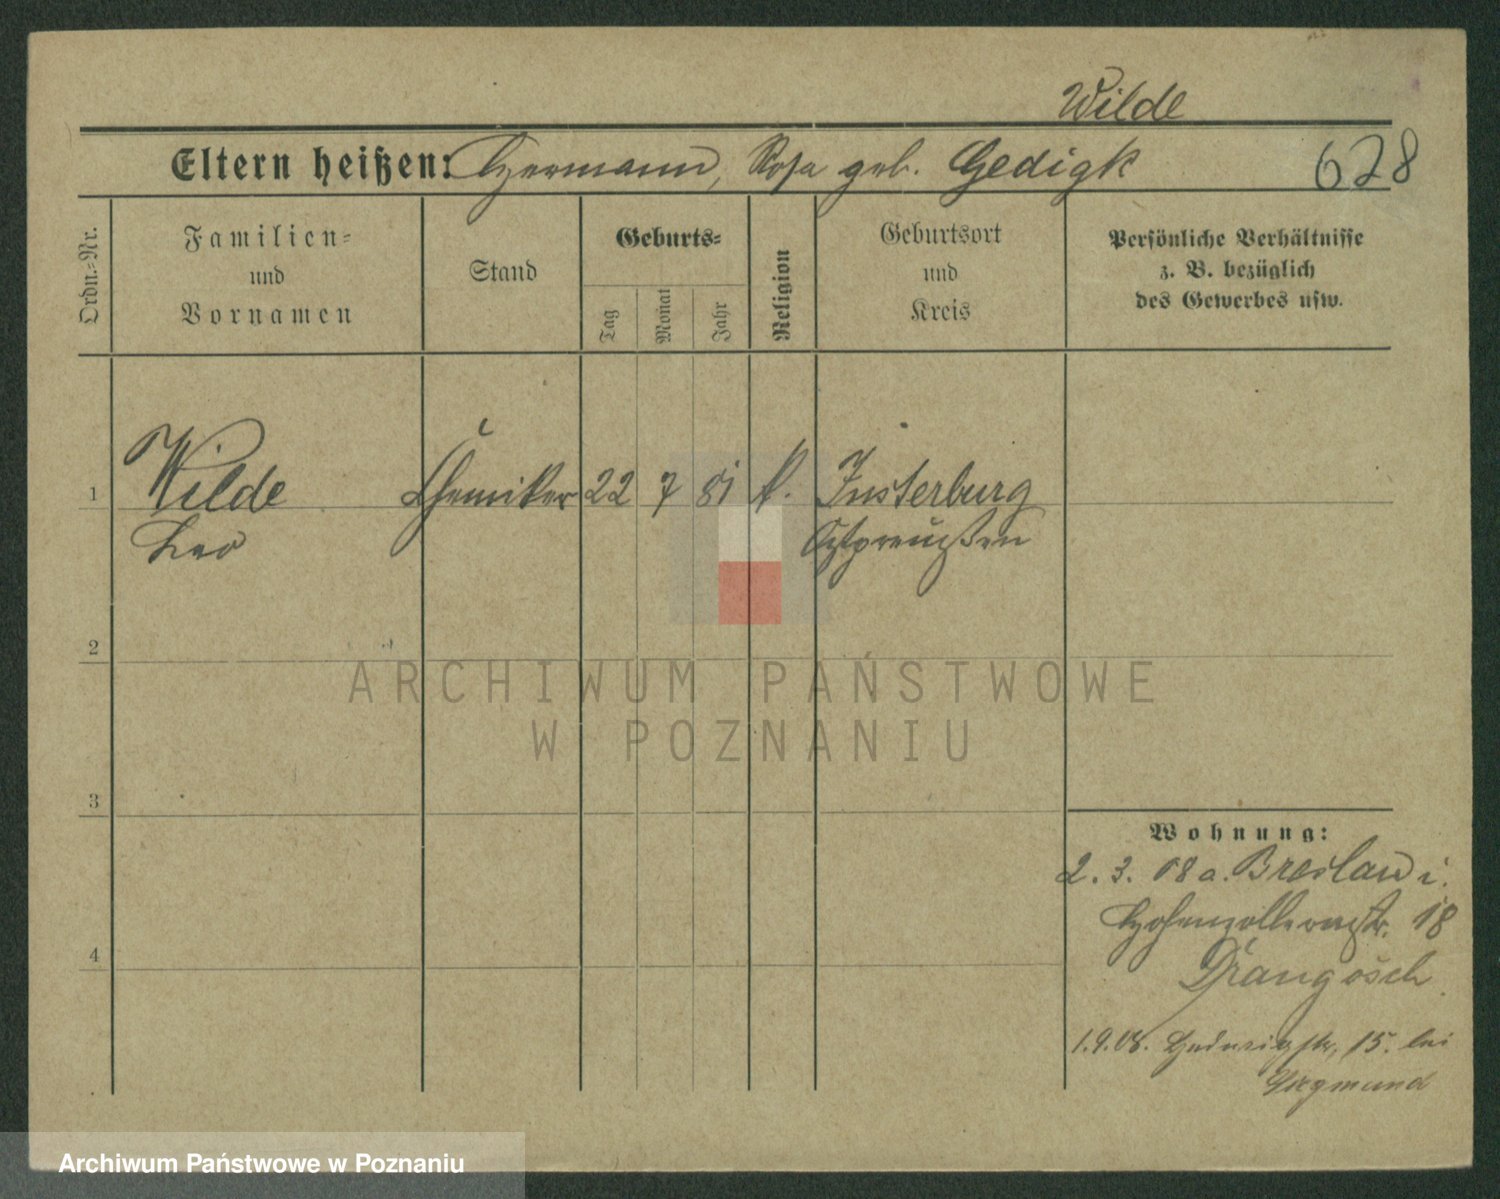 Wilde
Eltern heißen: Hermann, Rosa geb. Gedigk 628
Ordn.-Nr.
Familien-
und
Vornamen
Stand
Geburts-
Tag
Monat
Jahr
Religion
Geburtsort
und
Kreis
Persönliche Verhältnisse
z. B. bezüglich
des Gewerbes usw.
1 Wilde Chemiker 22 7 81 k. Insterburg
Leo Ostpreußen
2
3
4
ARCHIWUM PAŃSTWOWE
W POZNANIU
Wohnung:
2. 3. 08 a. Breslau i.
Hohenzollernstr. 18
1.9.08. Hedwigstr. 15. bei
Siegmund
Archiwum Państwowe w Poznaniu